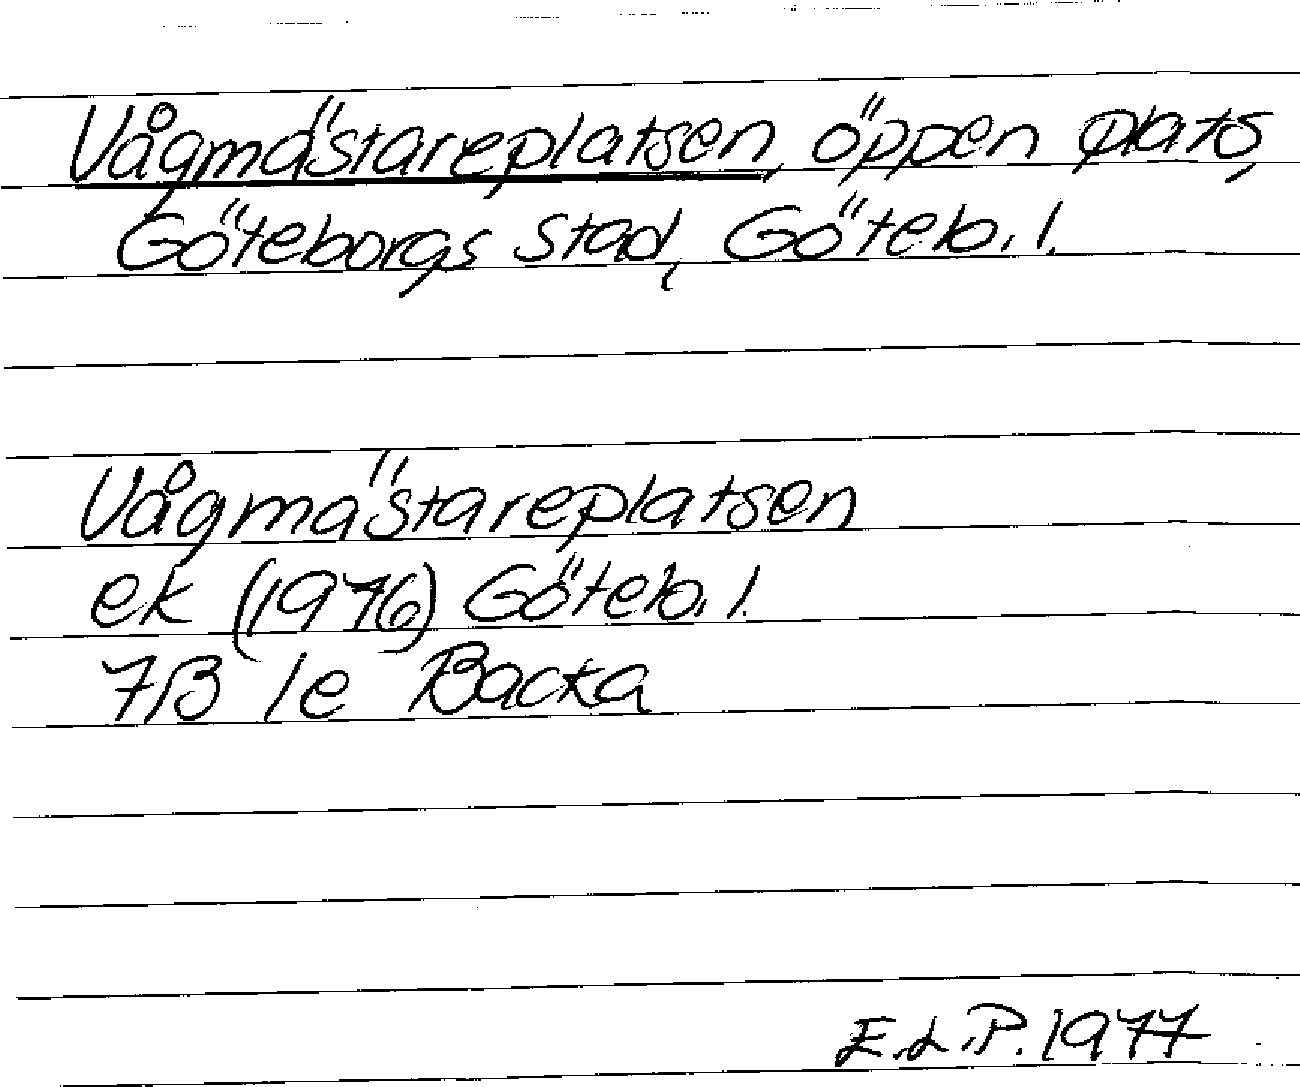 Vågmästareplatsen, öppen plats,
Göteborgs stad, Göteb. l.
Vågmästareplatsen
ek (1976) Göteb. l.
7B 1e Backa
E.L.P. 1977